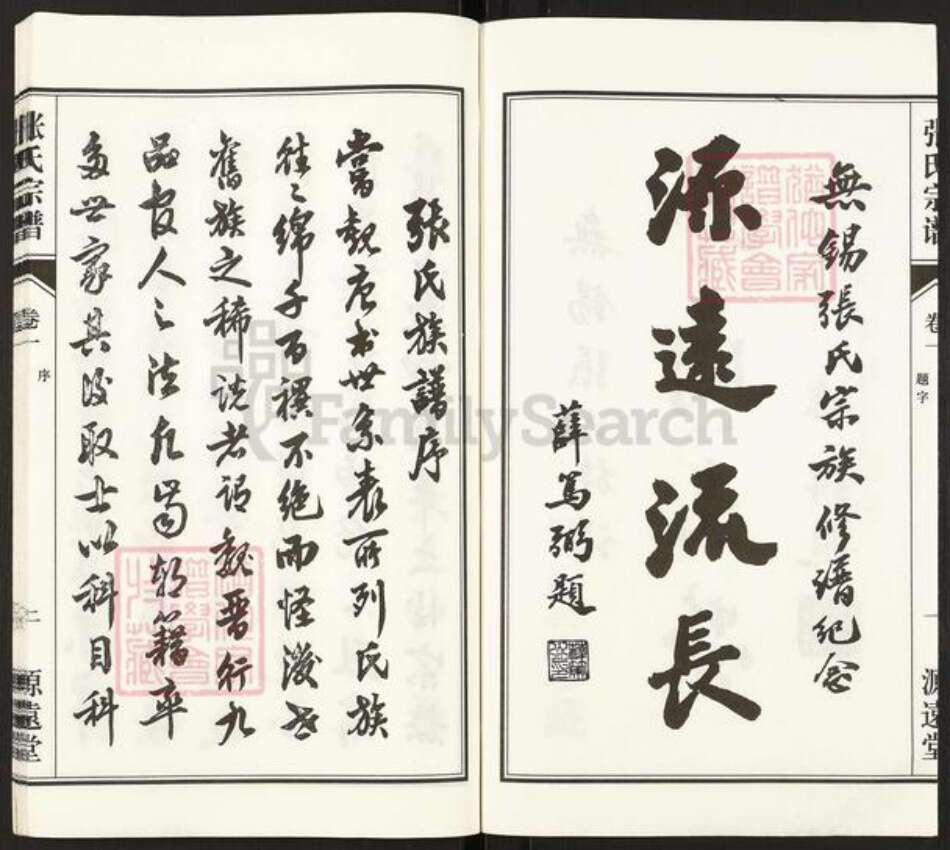 张氏宗谱
卷一
題字
一
源遠堂
無錫張氏宗族修譜紀念
源遠流長
薛篤弼題
張氏族譜序
當觀唐書世系表所列氏族
往〻綿千百禩不絕而怪後世
舊族之稀說者謂魏晉行九
品官人之法凡朝籍率
多世家其後取士以科目科
张氏宗谱
卷一
序
二
源遠堂
FamilySearch